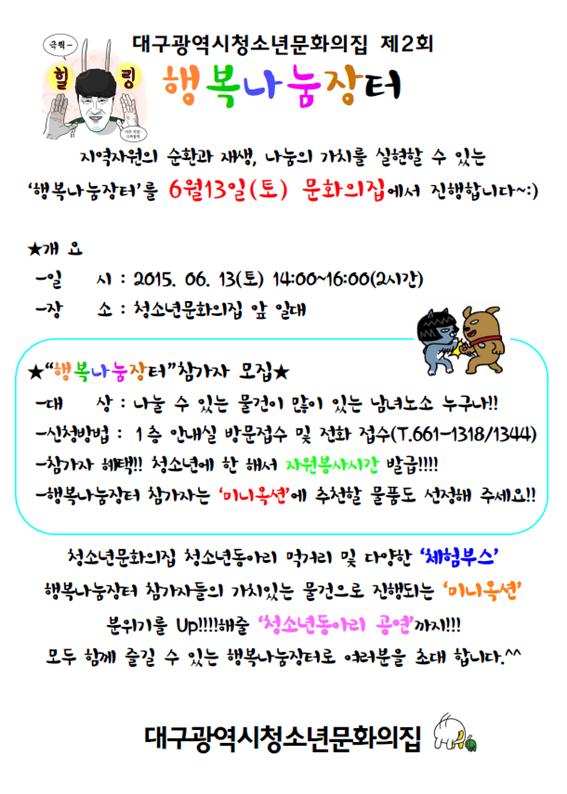 극뽁~
힐
링
대구광역시청소년문화의집 제2회
행복나눔장터
지역자원의 순환과 재생, 나눔의 가치를 실현할 수 있는
'행복나눔장터'를 6월13일(토) 문화의집에서 진행합니다~:)
★개 요
-일 시 : 2015. 06. 13(토) 14:00~16:00(2시간)
-장 소 : 청소년문화의집 앞 일대
★"행복나눔장터"참가자 모집★
-대 상 : 나눌 수 있는 물건이 많이 있는 남녀노소 누구나!!
-신청방법 : 1층 안내실 방문접수 및 전화 접수(T.661-1318/1344)
-참가자 혜택!! 청소년에 한 해서 자원봉사시간 발급!!!!
-행복나눔장터 참가자는 '미니옥션'에 추천할 물품도 선정해 주세요!!
청소년문화의집 청소년동아리 먹거리 및 다양한 '체험부스'
행복나눔장터 참가자들의 가치있는 물건으로 진행되는 '미니옥션'
분위기를 Up!!!!해줄 '청소년동아리 공연'까지!!!
모두 함께 즐길 수 있는 행복나눔장터로 여러분을 초대 합니다.^^
대구광역시청소년문화의집